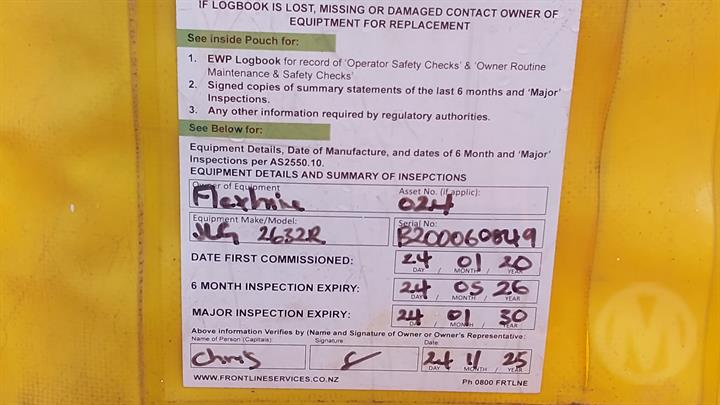 IF LOGBOOK IS LOST, MISSING OR DAMAGED CONTACT OWNER OF
EQUIPTMENT FOR REPLACEMENT
See inside Pouch for:
1. EWP Logbook for record of 'Operator Safety Checks' & 'Owner Routine
Maintenance & Safety Checks'
2. Signed copies of summary statements of the last 6 months and 'Major'
Inspections.
3. Any other information required by regulatory authorities.
See Below for:
Equipment Details, Date of Manufacture, and dates of 6 Month and 'Major'
Inspections per AS2550.10.
EQUIPMENT DETAILS AND SUMMARY OF INSEPCTIONS
Owner of Equipment Asset No. (if applic):
Flexhire 024
Equipment Make/Model: Serial No:
JLG 2632R B200060849
DATE FIRST COMMISSIONED: 24 01 20
DAY / MONTH / YEAR
6 MONTH INSPECTION EXPIRY: 24 05 26
DAY / MONTH / YEAR
MAJOR INSPECTION EXPIRY: 24 01 30
DAY / MONTH / YEAR
Above information Verifies by (Name and Signature of Owner or Owner's Representative:
Name of Person (Capitals): Signature: Date:
Chris 24 11 25
DAY / MONTH / YEAR
WWW.FRONTLINESERVICES.CO.NZ Ph 0800 FRTLNE
M